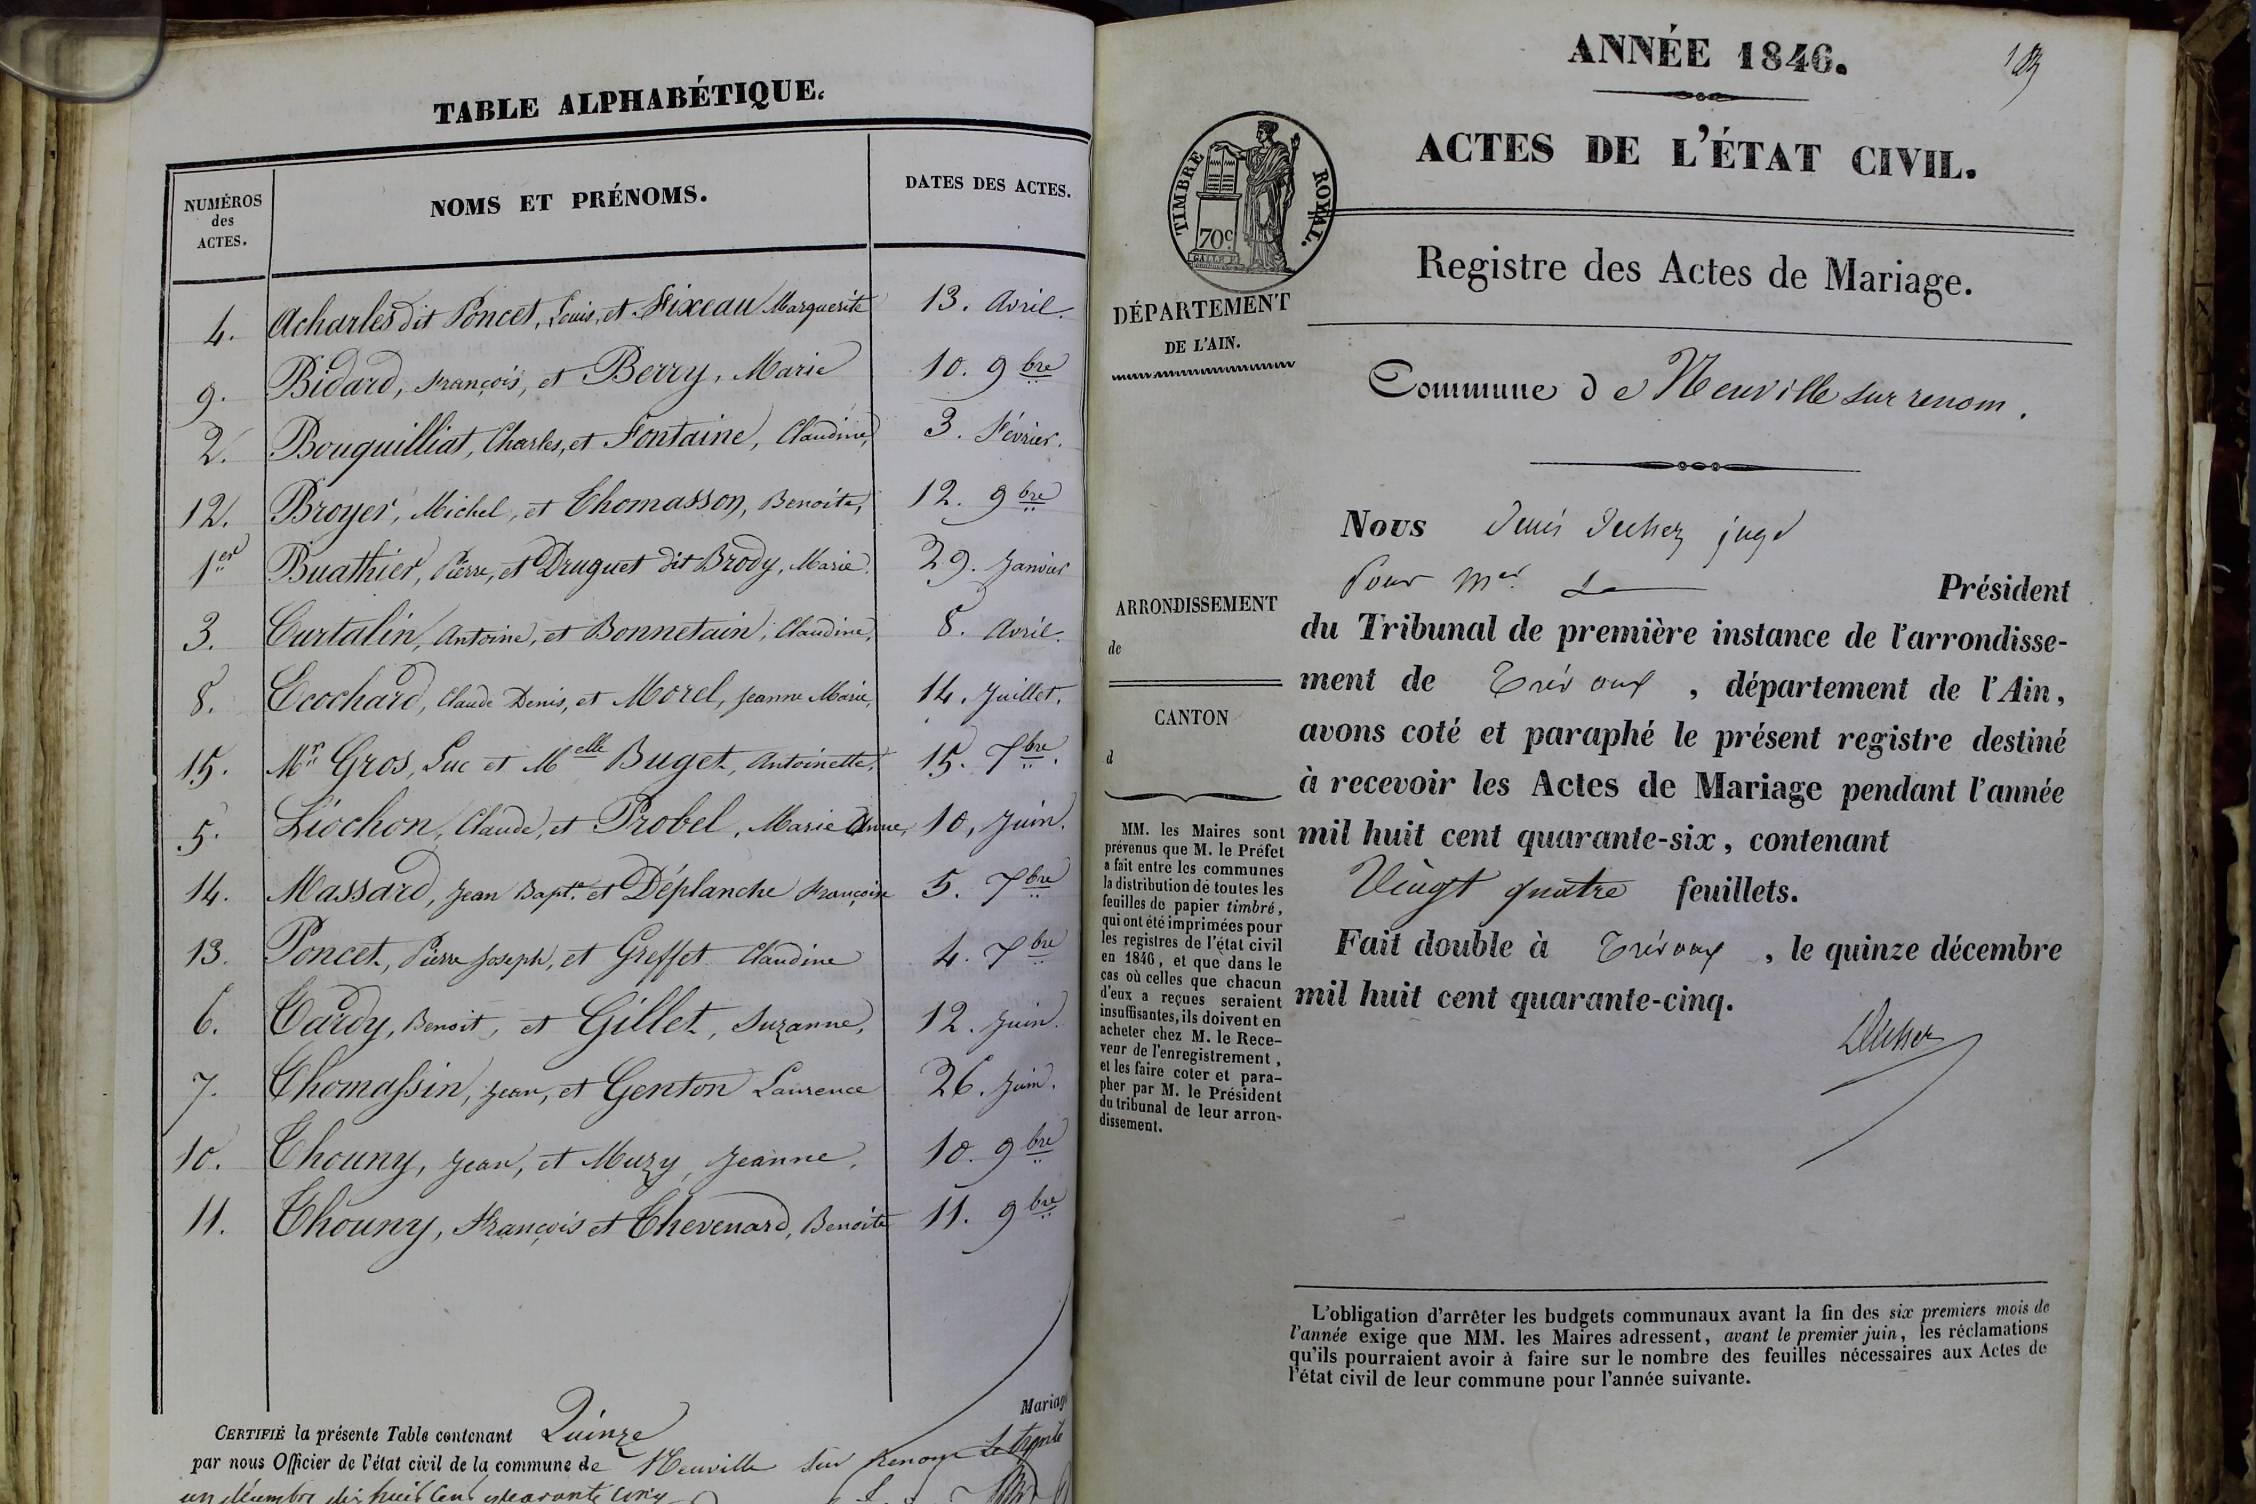 TABLE ALPHABÉTIQUE.
NUMÉROS
des
ACTES.
NOMS ET PRÉNOMS.
DATES DES ACTES.
4. Acharles dit Poncet, Louis, et Fixeau Marguerite 13. Avril.
9. Bidard, François, et Berry, Marie 10. 9bre
2. Bouquilliat, Charles, et Fontaine, Claudine, 3. Février.
12. Broyer, Michel, et Thomasson, Benoite, 12. 9bre
1er Buathier, Pierre, et Druguet dit Brody, Marie. 29. Janvier
3. Curtalin, Antoine, et Bonnetain, Claudine, 8. Avril.
8. Ecochard, Claude Denis, et Morel, Jeanne Marie, 14. Juillet.
15. Mr Gros, Luc et Melle Buget, Antoinette, 15. 7bre.
5. Liochon, Claude, et Probel, Marie Anne, 10, Juin.
14. Massard, Jean Bapte. et Déplanche Françoise 5. 7bre
13. Poncet, Pierre Joseph, et Greffet Claudine 4. 7bre
6. Tardy, Benoit, et Gillet, Suzanne, 12. Juin.
7. Thomassin, Jean, et Genton Laurence 26. Juin.
10. Thouny, Jean, et Muzy, Jeanne, 10. 9bre
11. Thouny, François et Chevenard, Benoite 11. 9bre
Mariag
CERTIFIÉ la présente Table contenant Quinze
par nous Officier de l'état civil de la commune de Neuville sur Renom Le trente
un décembre dix huit cent quarante cinq
ANNÉE 1846.
ACTES DE L'ÉTAT CIVIL.
TIMBRE ROYAL.
70c
Registre des Actes de Mariage.
DÉPARTEMENT
DE L'AIN.
Commune de Neuville sur renom.
Nous Denis Ducher juge
Pour Mr. Le Président
du Tribunal de première instance de l'arrondisse-
ment de Trévoux, département de l'Ain,
avons coté et paraphé le présent registre destiné
à recevoir les Actes de Mariage pendant l'année
mil huit cent quarante-six, contenant
Vingt quatre feuillets.
Fait double à Trévoux, le quinze décembre
mil huit cent quarante-cinq.
Ducher
ARRONDISSEMENT
de
CANTON
d
MM. les Maires sont
prévenus que M. le Préfet
a fait entre les communes
la distribution de toutes les
feuilles de papier timbré,
qui ont été imprimées pour
les registres de l'état civil
en 1846, et que dans le
cas où celles que chacun
d'eux a reçues seraient
insuffisantes, ils doivent en
acheter chez M. le Rece-
veur de l'enregistrement,
et les faire coter et para-
pher par M. le Président
du tribunal de leur arron-
dissement.
L'obligation d'arrêter les budgets communaux avant la fin des six premiers mois de
l'année exige que MM. les Maires adressent, avant le premier juin, les réclamations
qu'ils pourraient avoir à faire sur le nombre des feuilles nécessaires aux Actes de
l'état civil de leur commune pour l'année suivante.